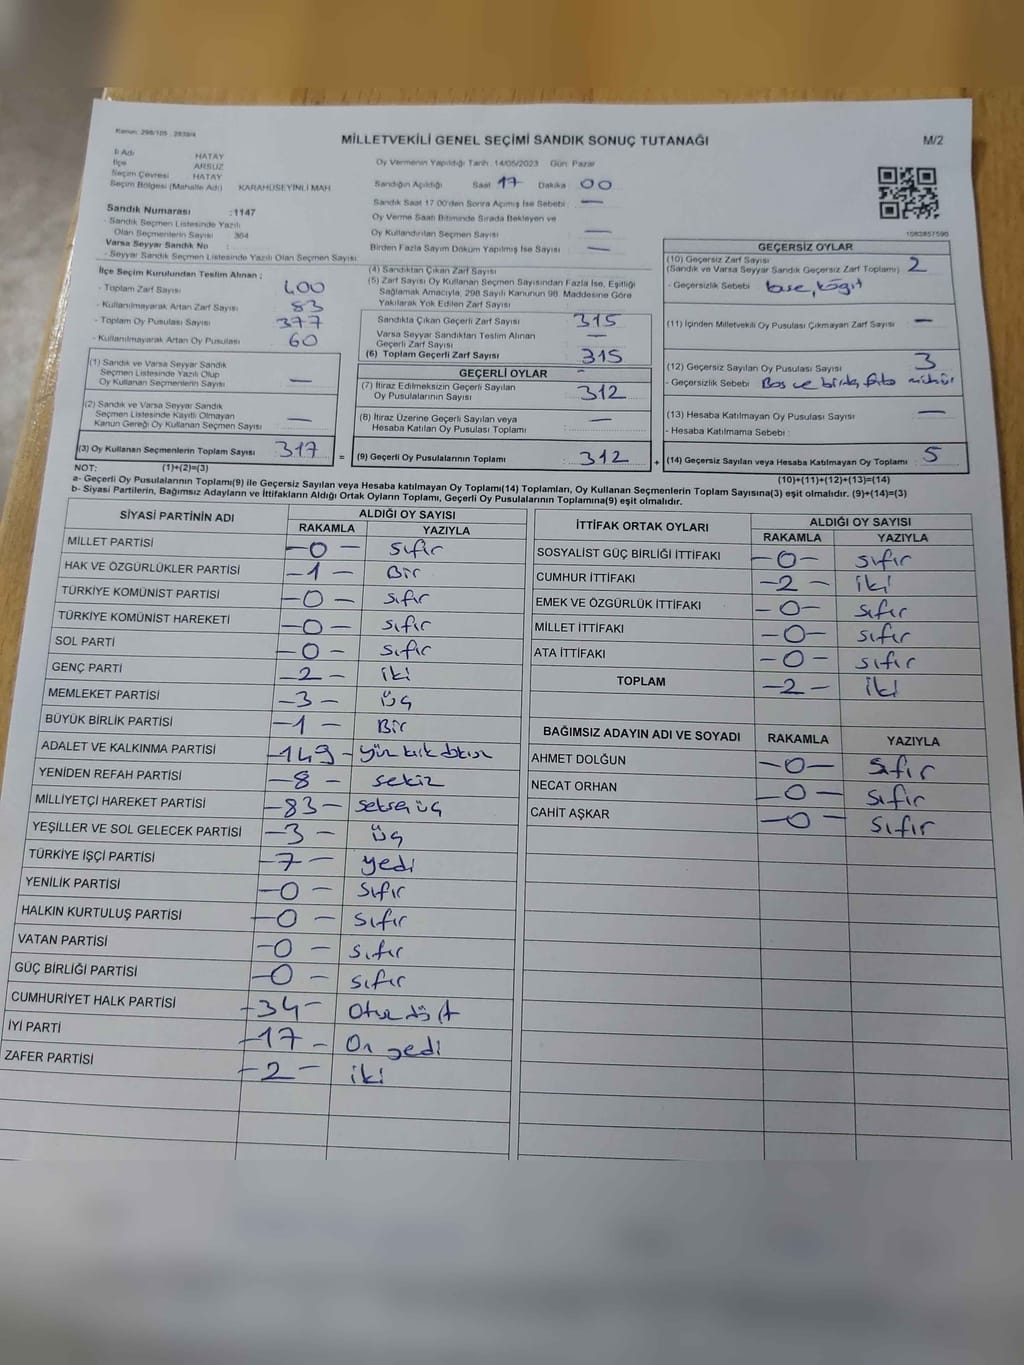 Kanun: 298/105 , 2839/4
MİLLETVEKİLİ GENEL SEÇİMİ SANDIK SONUÇ TUTANAĞI
M/2
İl Adı HATAY
İlçe ARSUZ
Seçim Çevresi HATAY
Seçim Bölgesi (Mahalle Adı) KARAHÜSEYİNLİ MAH.
Sandık Numarası :1147
- Sandık Seçmen Listesinde Yazılı
Olan Seçmenlerin Sayısı 364
Varsa Seyyar Sandık No :
- Seyyar Sandık Seçmen Listesinde Yazılı Olan Seçmen Sayısı
Oy Vermenin Yapıldığı Tarih :14/05/2023 Gün: Pazar
Sandığın Açıldığı Saat 17 Dakika : 00
Sandık Saat 17.00'den Sonra Açılmış İse Sebebi : —
Oy Verme Saati Bitiminde Sırada Bekleyen ve
Oy Kullandırılan Seçmen Sayısı : —
Birden Fazla Sayım Döküm Yapılmış İse Sayısı : —
1583857590
İlçe Seçim Kurulundan Teslim Alınan ;
- Toplam Zarf Sayısı : 400
- Kullanılmayarak Artan Zarf Sayısı : 83
- Toplam Oy Pusulası Sayısı : 377
- Kullanılmayarak Artan Oy Pusulası : 60
(1) Sandık ve Varsa Seyyar Sandık
Seçmen Listesinde Yazılı Olup
Oy Kullanan Seçmenlerin Sayısı : —
(2) Sandık ve Varsa Seyyar Sandık
Seçmen Listesinde Kayıtlı Olmayan
Kanun Gereği Oy Kullanan Seçmen Sayısı : —
(3) Oy Kullanan Seçmenlerin Toplam Sayısı : 317
(4) Sandıktan Çıkan Zarf Sayısı
(5) Zarf Sayısı Oy Kullanan Seçmen Sayısından Fazla İse, Eşitliği
Sağlamak Amacıyla, 298 Sayılı Kanunun 98. Maddesine Göre
Yakılarak Yok Edilen Zarf Sayısı
Sandıkta Çıkan Geçerli Zarf Sayısı : 315
Varsa Seyyar Sandıktan Teslim Alınan
Geçerli Zarf Sayısı : —
(6) Toplam Geçerli Zarf Sayısı : 315
GEÇERLİ OYLAR
(7) İtiraz Edilmeksizin Geçerli Sayılan
Oy Pusulalarının Sayısı : 312
(8) İtiraz Üzerine Geçerli Sayılan veya
Hesaba Katılan Oy Pusulası Toplamı : —
= (9) Geçerli Oy Pusulalarının Toplamı : 312
GEÇERSİZ OYLAR
(10) Geçersiz Zarf Sayısı
(Sandık ve Varsa Seyyar Sandık Geçersiz Zarf Toplamı) : 2
- Geçersizlik Sebebi :
(11) İçinden Milletvekili Oy Pusulası Çıkmayan Zarf Sayısı : —
(12) Geçersiz Sayılan Oy Pusulası Sayısı : 3
- Geçersizlik Sebebi : Boş ve birden fazla mühür
(13) Hesaba Katılmayan Oy Pusulası Sayısı : —
- Hesaba Katılmama Sebebi :
+ (14) Geçersiz Sayılan veya Hesaba Katılmayan Oy Toplamı : 5
NOT: (1)+(2)=(3)
(10)+(11)+(12)+(13)=(14)
a- Geçerli Oy Pusulalarının Toplamı(9) ile Geçersiz Sayılan veya Hesaba katılmayan Oy Toplamı(14) Toplamları, Oy Kullanan Seçmenlerin Toplam Sayısına(3) eşit olmalıdır. (9)+(14)=(3)
b- Siyasi Partilerin, Bağımsız Adayların ve İttifakların Aldığı Ortak Oyların Toplamı, Geçerli Oy Pusulalarının Toplamına(9) eşit olmalıdır.
SİYASİ PARTİNİN ADI ALDIĞI OY SAYISI
RAKAMLA YAZIYLA
MİLLET PARTİSİ —0— sıfır
HAK VE ÖZGÜRLÜKLER PARTİSİ —1— Bir
TÜRKİYE KOMÜNİST PARTİSİ —0— sıfır
TÜRKİYE KOMÜNİST HAREKETİ —0— sıfır
SOL PARTİ —0— sıfır
GENÇ PARTİ —2— iki
MEMLEKET PARTİSİ —3— üç
BÜYÜK BİRLİK PARTİSİ —1— Bir
ADALET VE KALKINMA PARTİSİ —149— yüz kırk dokuz
YENİDEN REFAH PARTİSİ —8— sekiz
MİLLİYETÇİ HAREKET PARTİSİ —83— seksen üç
YEŞİLLER VE SOL GELECEK PARTİSİ —3— üç
TÜRKİYE İŞÇİ PARTİSİ —7— yedi
YENİLİK PARTİSİ —0— sıfır
HALKIN KURTULUŞ PARTİSİ —0— sıfır
VATAN PARTİSİ —0— sıfır
GÜÇ BİRLİĞİ PARTİSİ —0— sıfır
CUMHURİYET HALK PARTİSİ —34— Otuz dört
İYİ PARTİ —17— On yedi
ZAFER PARTİSİ —2— iki
İTTİFAK ORTAK OYLARI ALDIĞI OY SAYISI
RAKAMLA YAZIYLA
SOSYALİST GÜÇ BİRLİĞİ İTTİFAKI —0— sıfır
CUMHUR İTTİFAKI —2— iki
EMEK VE ÖZGÜRLÜK İTTİFAKI —0— sıfır
MİLLET İTTİFAKI —0— sıfır
ATA İTTİFAKI —0— sıfır
TOPLAM —2— iki
BAĞIMSIZ ADAYIN ADI VE SOYADI RAKAMLA YAZIYLA
AHMET DOLĞUN —0— sıfır
NECAT ORHAN —0— sıfır
CAHİT AŞKAR —0— sıfır